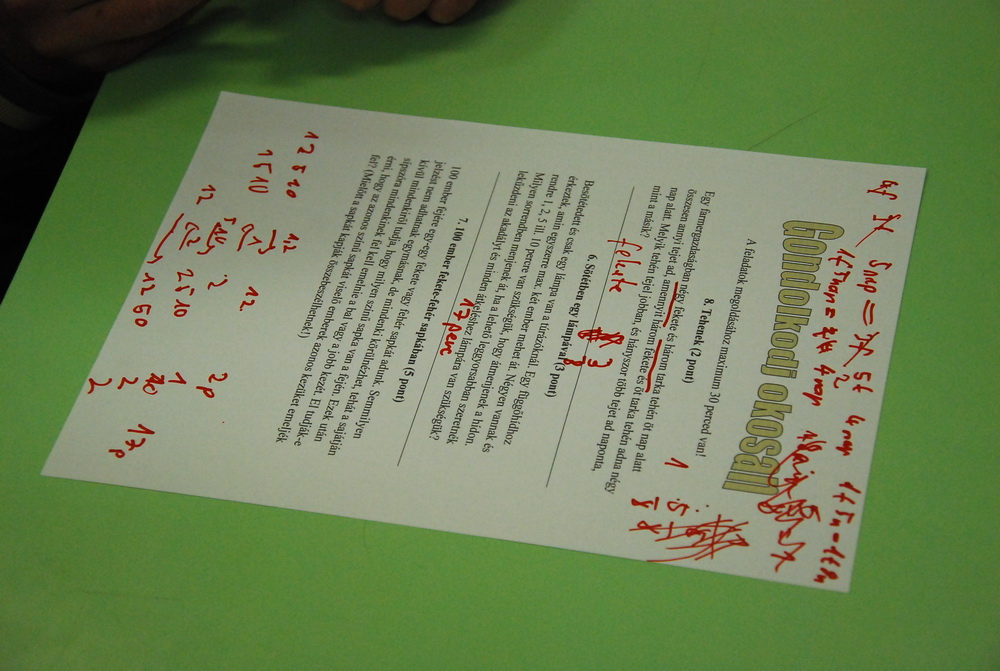 5nap = 5t 4nap
Gondolkodj okosan
A feladatok megoldásához maximum 30 perced van!
8. Tehenek (2 pont)
Egy farmergazdaságban négy fekete és három tarka tehén öt nap alatt
összesen annyi tejet ad, amennyit három fekete és öt tarka tehén adna négy
nap alatt. Melyik tehén fejel jobban, és hányszor több tejet ad naponta,
mint a másik?
fekete
6. Sötétben egy lámpával (3 pont)
Besötétedett és csak egy lámpa van a túrázóknál. Egy függőhídhoz
érkeztek, amin egyszerre max. két ember mehet át. Négyen vannak és
rendre 1, 2, 5 ill. 10 percre van szükségük, hogy átmenjenek a hídon.
Milyen sorrendben menjenek át, ha a lehető leggyorsabban szeretnék
leküzdeni az akadályt és minden átkeléshez lámpára van szükségük?
17 perc
7. 100 ember fekete-fehér sapkában (5 pont)
100 ember fejére egy-egy fekete vagy fehér sapkát adunk. Semmilyen
jelzést nem adhatnak egymásnak, de mindenki körülnézhet, tehát a sajátján
kívül mindenkiről tudja, hogy milyen színű sapka van a fején. Ezek után
sípszóra mindenkinek fel kell emelnie a bal vagy a jobb kezét. El tudják-e
érni, hogy az azonos színű sapkát viselő emberek azonos kezüket emeljék
fel? (Mielőtt a sapkát kapják összebeszélhetnek!)
12510 12
1510 12
12 2 2p
2510 1
1250 2 17p
2